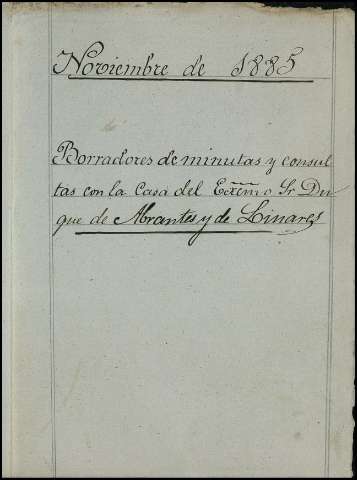 Noviembre de 1885
Borradores de minutas y consul
tas con la Casa del Exc̃m̃o Sr. Du
que de Abrantes y de Linares